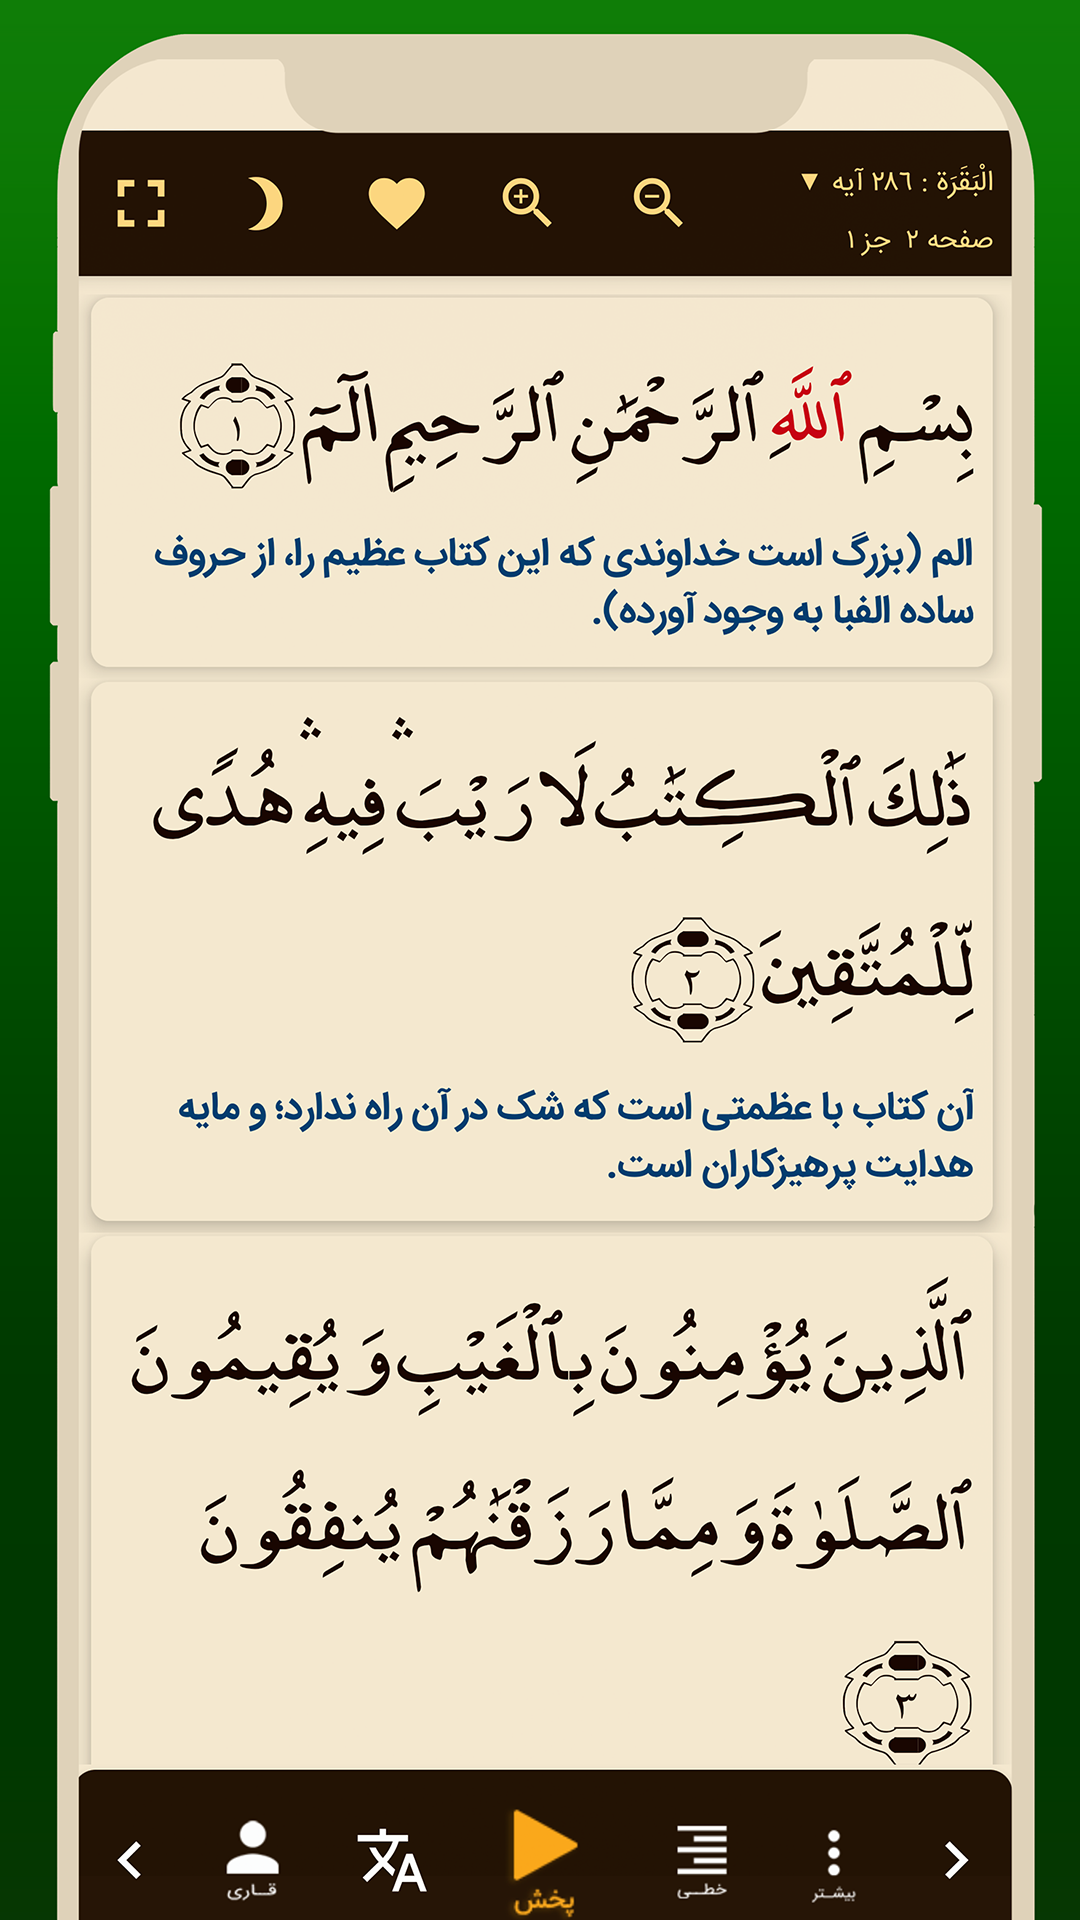 الْبَقَرَة : ٢٨٦ آیه ▼
صفحه ٢ جز ١
بِسْمِ ٱللَّهِ ٱلرَّحْمَٰنِ ٱلرَّحِيمِ الٓمٓ ١
الم (بزرگ است خداوندی که این کتاب عظیم را، از حروف
ساده الفبا به وجود آورده).
ذَٰلِكَ ٱلْكِتَٰبُ لَا رَيْبَ ۛ فِيهِ ۛ هُدًى
لِّلْمُتَّقِينَ ٢
آن کتاب با عظمتی است که شک در آن راه ندارد؛ و مایه
هدایت پرهیزکاران است.
ٱلَّذِينَ يُؤْمِنُونَ بِٱلْغَيْبِ وَيُقِيمُونَ
ٱلصَّلَوٰةَ وَمِمَّا رَزَقْنَٰهُمْ يُنفِقُونَ
٣
بیشـتر
خطـی
پخش
قـاری